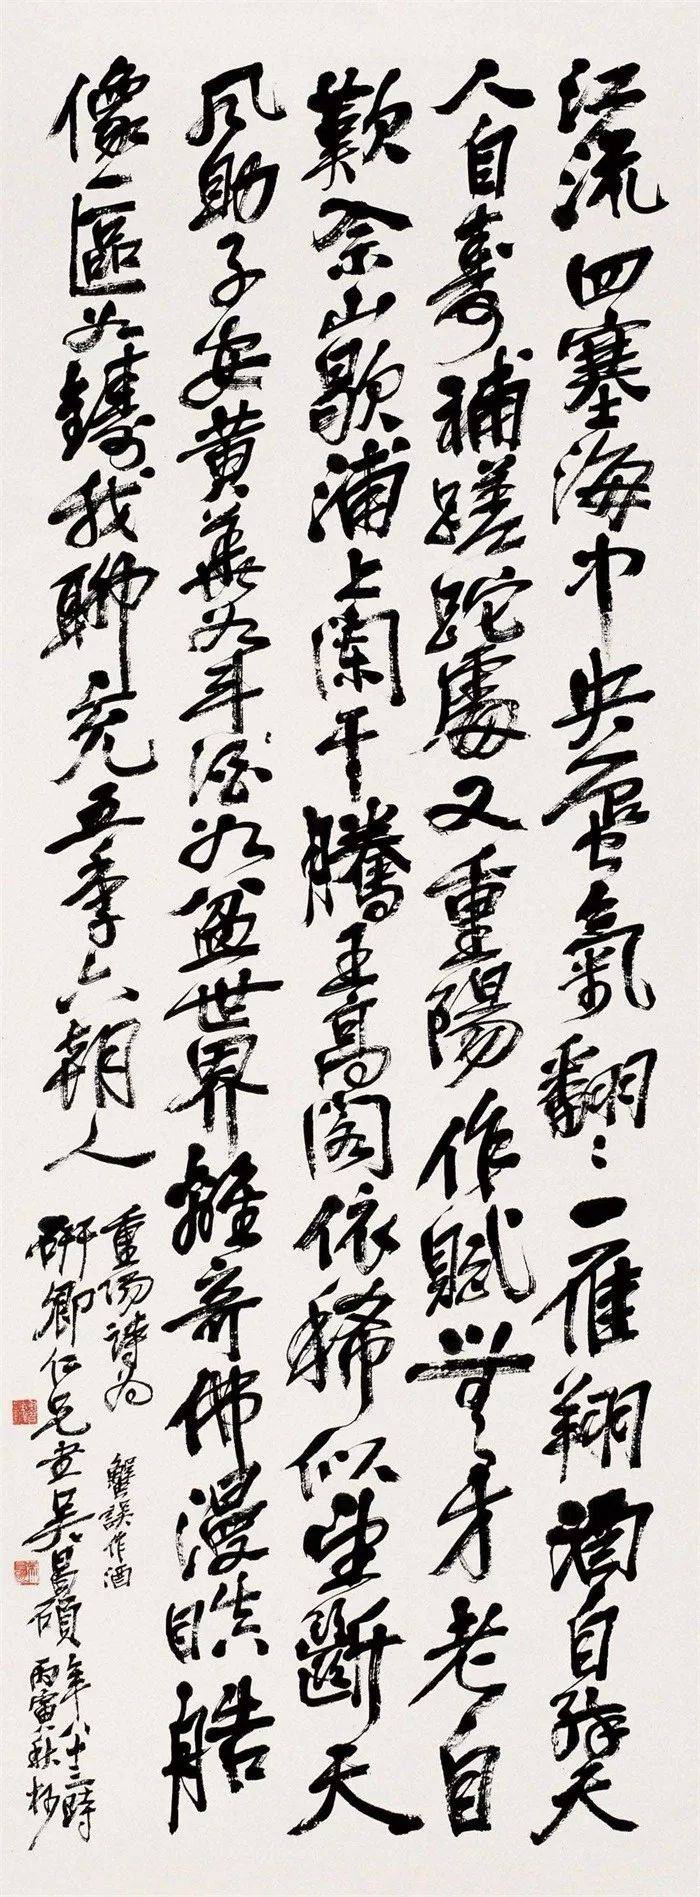 江流四塞海中央蜃氣翻〻一雁翔酒自醉天
人自壽補蹉跎處又重陽作賦無才老自
歎佘山歇浦上闌干滕王高閣依稀似望斷天
風助子安黃華如斗酒如盆世界離奇佛漫瞋艁
像一區如鑄我聊充五季六朝人
重陽詩為
蟹誤作酒
研卿仁兄書吳昌碩年八十三時
丙寅秋杪